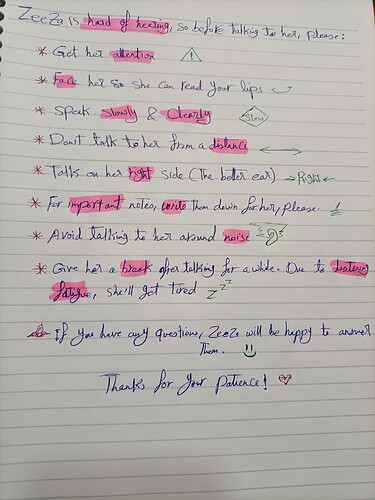 ZeeZa is hard of hearing, so before talking to her, please:
* Get her attention !
* Face her so she can read your lips
* Speak slowly & Clearly Slow
* Don't talk to her from a distance
* Talk on her right side (The better ear) → Right ←
* For important notes, write them down for her, please. !
* Avoid talking to her around noise
* Give her a break after talking for a while. Due to listening
fatigue, she'll get tired zzz
If you have any questions, ZeeZa will be happy to answer
Them.
Thanks for your Patience!